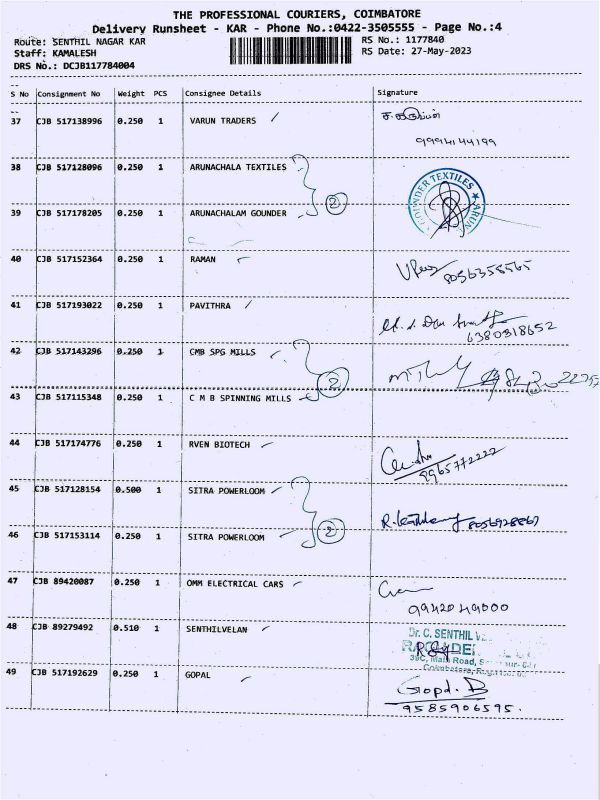 THE PROFESSIONAL COURIERS, COIMBATORE
Delivery Runsheet - KAR - Phone No.:0422-3505555 - Page No.:4
Route: SENTHIL NAGAR KAR RS No.: 1177840
Staff: KAMALESH RS Date: 27-May-2023
DRS No.: DCJB117784004
S No Consignment No Weight PCS Consignee Details Signature
37 CJB 517138996 0.250 1 VARUN TRADERS
9994144199
38 CJB 517128096 0.250 1 ARUNACHALA TEXTILES
2
GOUNDER TEXTILES ★ ARUN
39 CJB 517178205 0.250 1 ARUNACHALAM GOUNDER
40 CJB 517152364 0.250 1 RAMAN 8056358565
41 CJB 517193022 0.250 1 PAVITHRA
6380318652
42 CJB 517143296 0.250 1 CMB SPG MILLS
2
43 CJB 517115348 0.250 1 C M B SPINNING MILLS
44 CJB 517174776 0.250 1 RVEN BIOTECH
9965772222
45 CJB 517128154 0.500 1 SITRA POWERLOOM
2
46 CJB 517153114 0.250 1 SITRA POWERLOOM
47 CJB 89420087 0.250 1 OMM ELECTRICAL CARS
9942049000
48 CJB 89279492 0.510 1 SENTHILVELAN
Dr. C. SENTHIL
39C, Main Road,
Coimbatore,
49 CJB 517192629 0.250 1 GOPAL
9585906595.